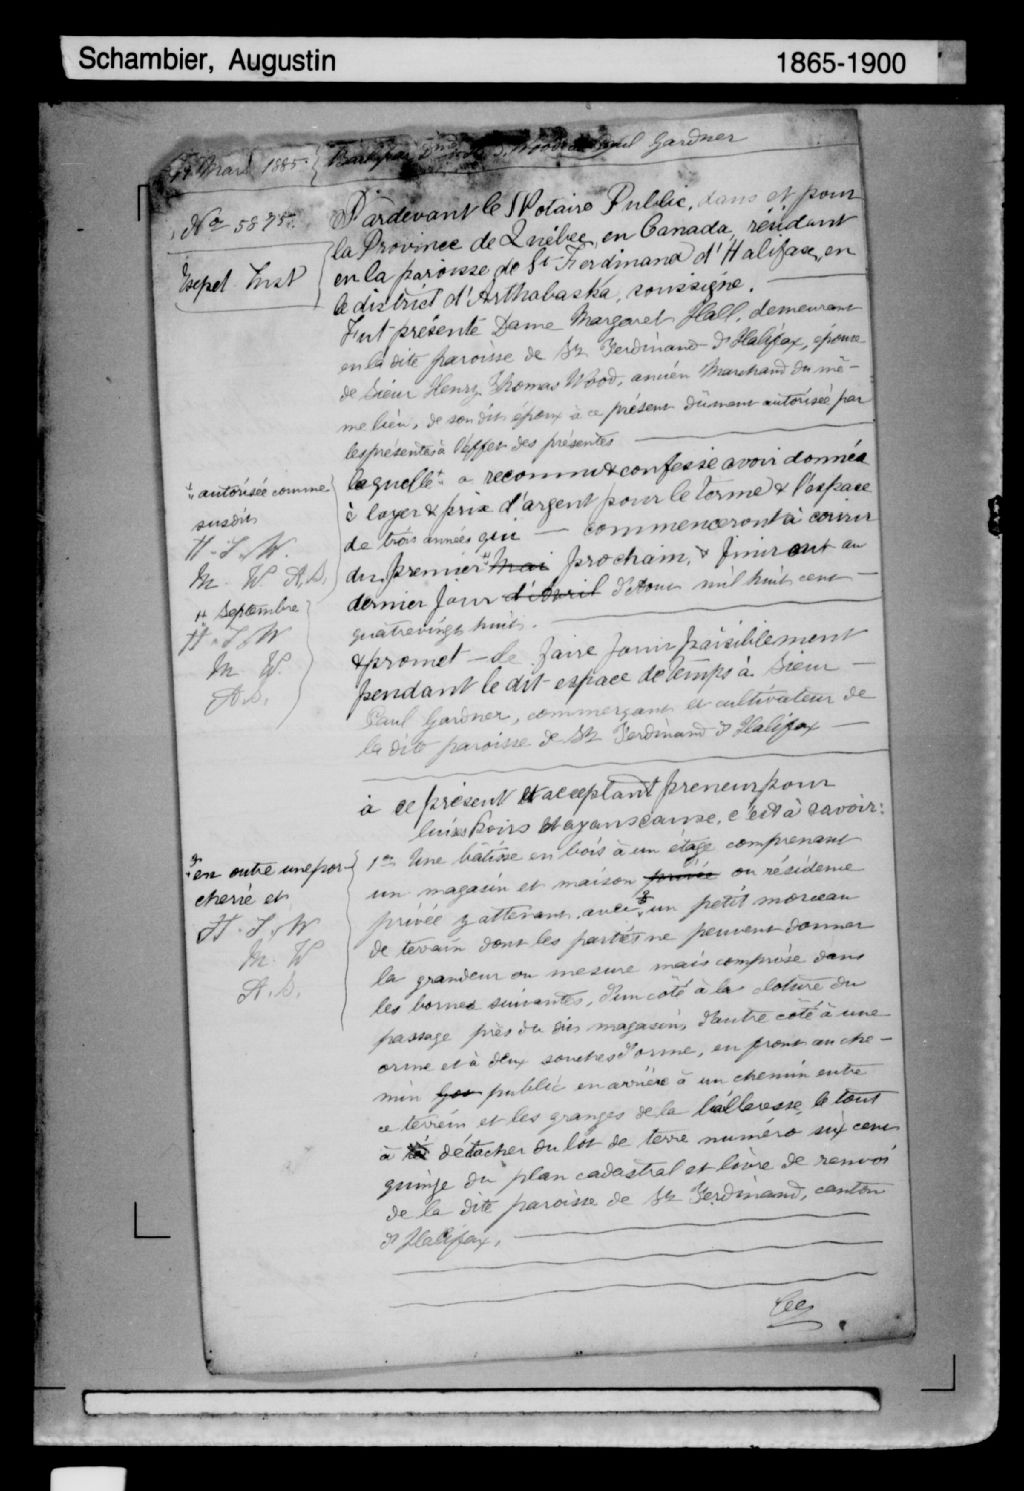 Schambier, Augustin
1865-1900
Mars 1885
Bail par Dme Wood à Paul Gardner
No 5875.
Pardevant le Notaire Public, dans et pour
la Province de Québec, en Canada, résidant
en la paroisse de St Ferdinand d'Halifax, en
le district d'Arthabaska, soussigné.
Fut présente Dame Margaret Hall, demeurant
en la dite paroisse de St Ferdinand d'Halifax, épouse
de Sieur Henry Thomas Wood, ancien Marchand du mê-
me lieu, de son dit époux à ce présent dûment autorisée par
les présentes à l'effet des présentes
laquelle a reconnu & confessé avoir donnéa
à loyer & prix d'argent pour le terme & l'espace
de trois années qui — commenceront à courir
du premier Mai prochain, & finiront au
dernier jour d'Avril d'Aout mil huit cent
quatrevingt huit.
& promet — de faire jouir paisiblement
pendant le dit espace de temps à Sieur —
Paul Gardner, commerçant et cultivateur de
la dite paroisse de St Ferdinand d'Halifax —
autorisée comme
susdit
H. T. W.
M. W. A.S.
Septembre
H. T. W
M. W.
A.S.
à ce présent et acceptant preneur pour
lui ses hoirs et ayans cause, c'est à savoir:
1o Une bâtisse en bois à un étage comprenant
un magasin et maison privée ou résidence
privée y attenant, avec un petit morceau
de terrain dont les parties ne peuvent donner
la grandeur ou mesure mais comprise dans
les bornes suivantes, d'un côté à la cloture du
passage près du dit magasin, d'autre côté à une
orme et à deux souches d'orme, en front au che-
min public en arrière à un chemin entre
ce terrein et les granges de la bailleresse, le tout
à détacher du lot de terre numéro six cent
quinze du plan cadastral et livre de renvoi
de la dite paroisse de St Ferdinand, canton
d'Halifax,
en outre une por-
cherie et
H. T. W
M. W
A. S.